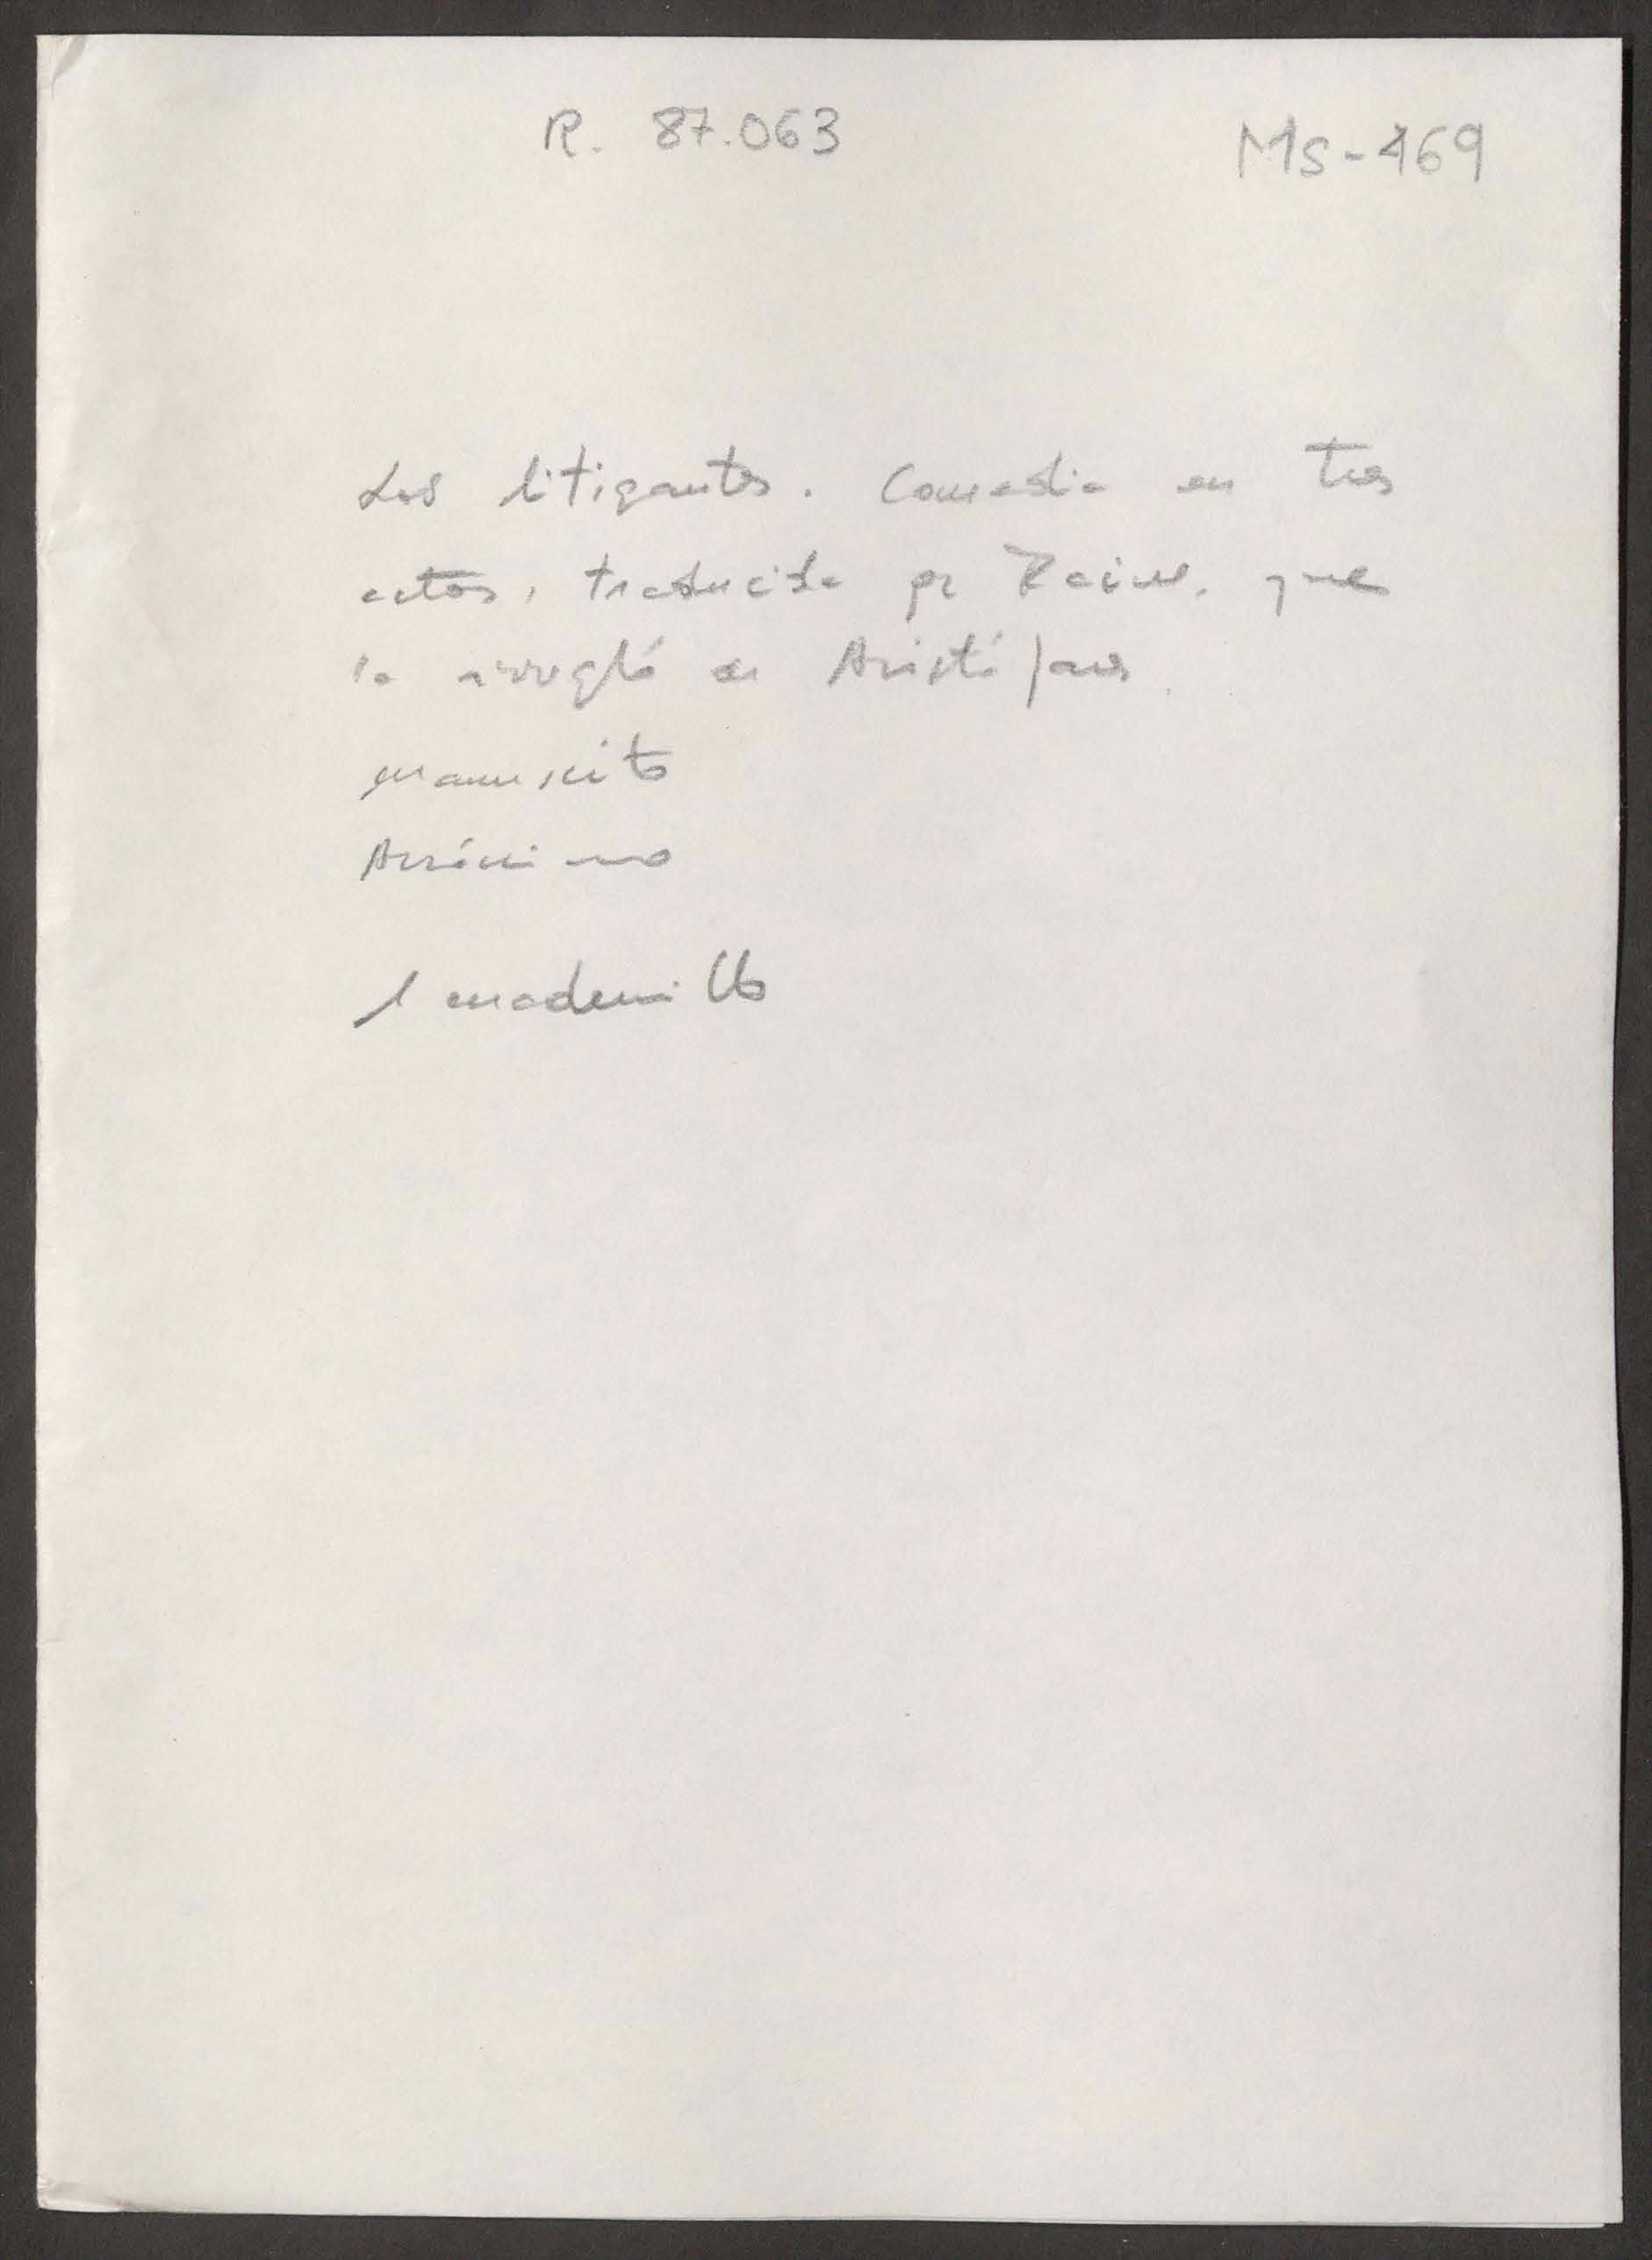 R. 87.063
Ms-469
Los litigantes. Comedia en tres
actos, traducida por Racine, que
la arregló de Aristófanes.
manuscrito
Anónimo
1 cuadernillo